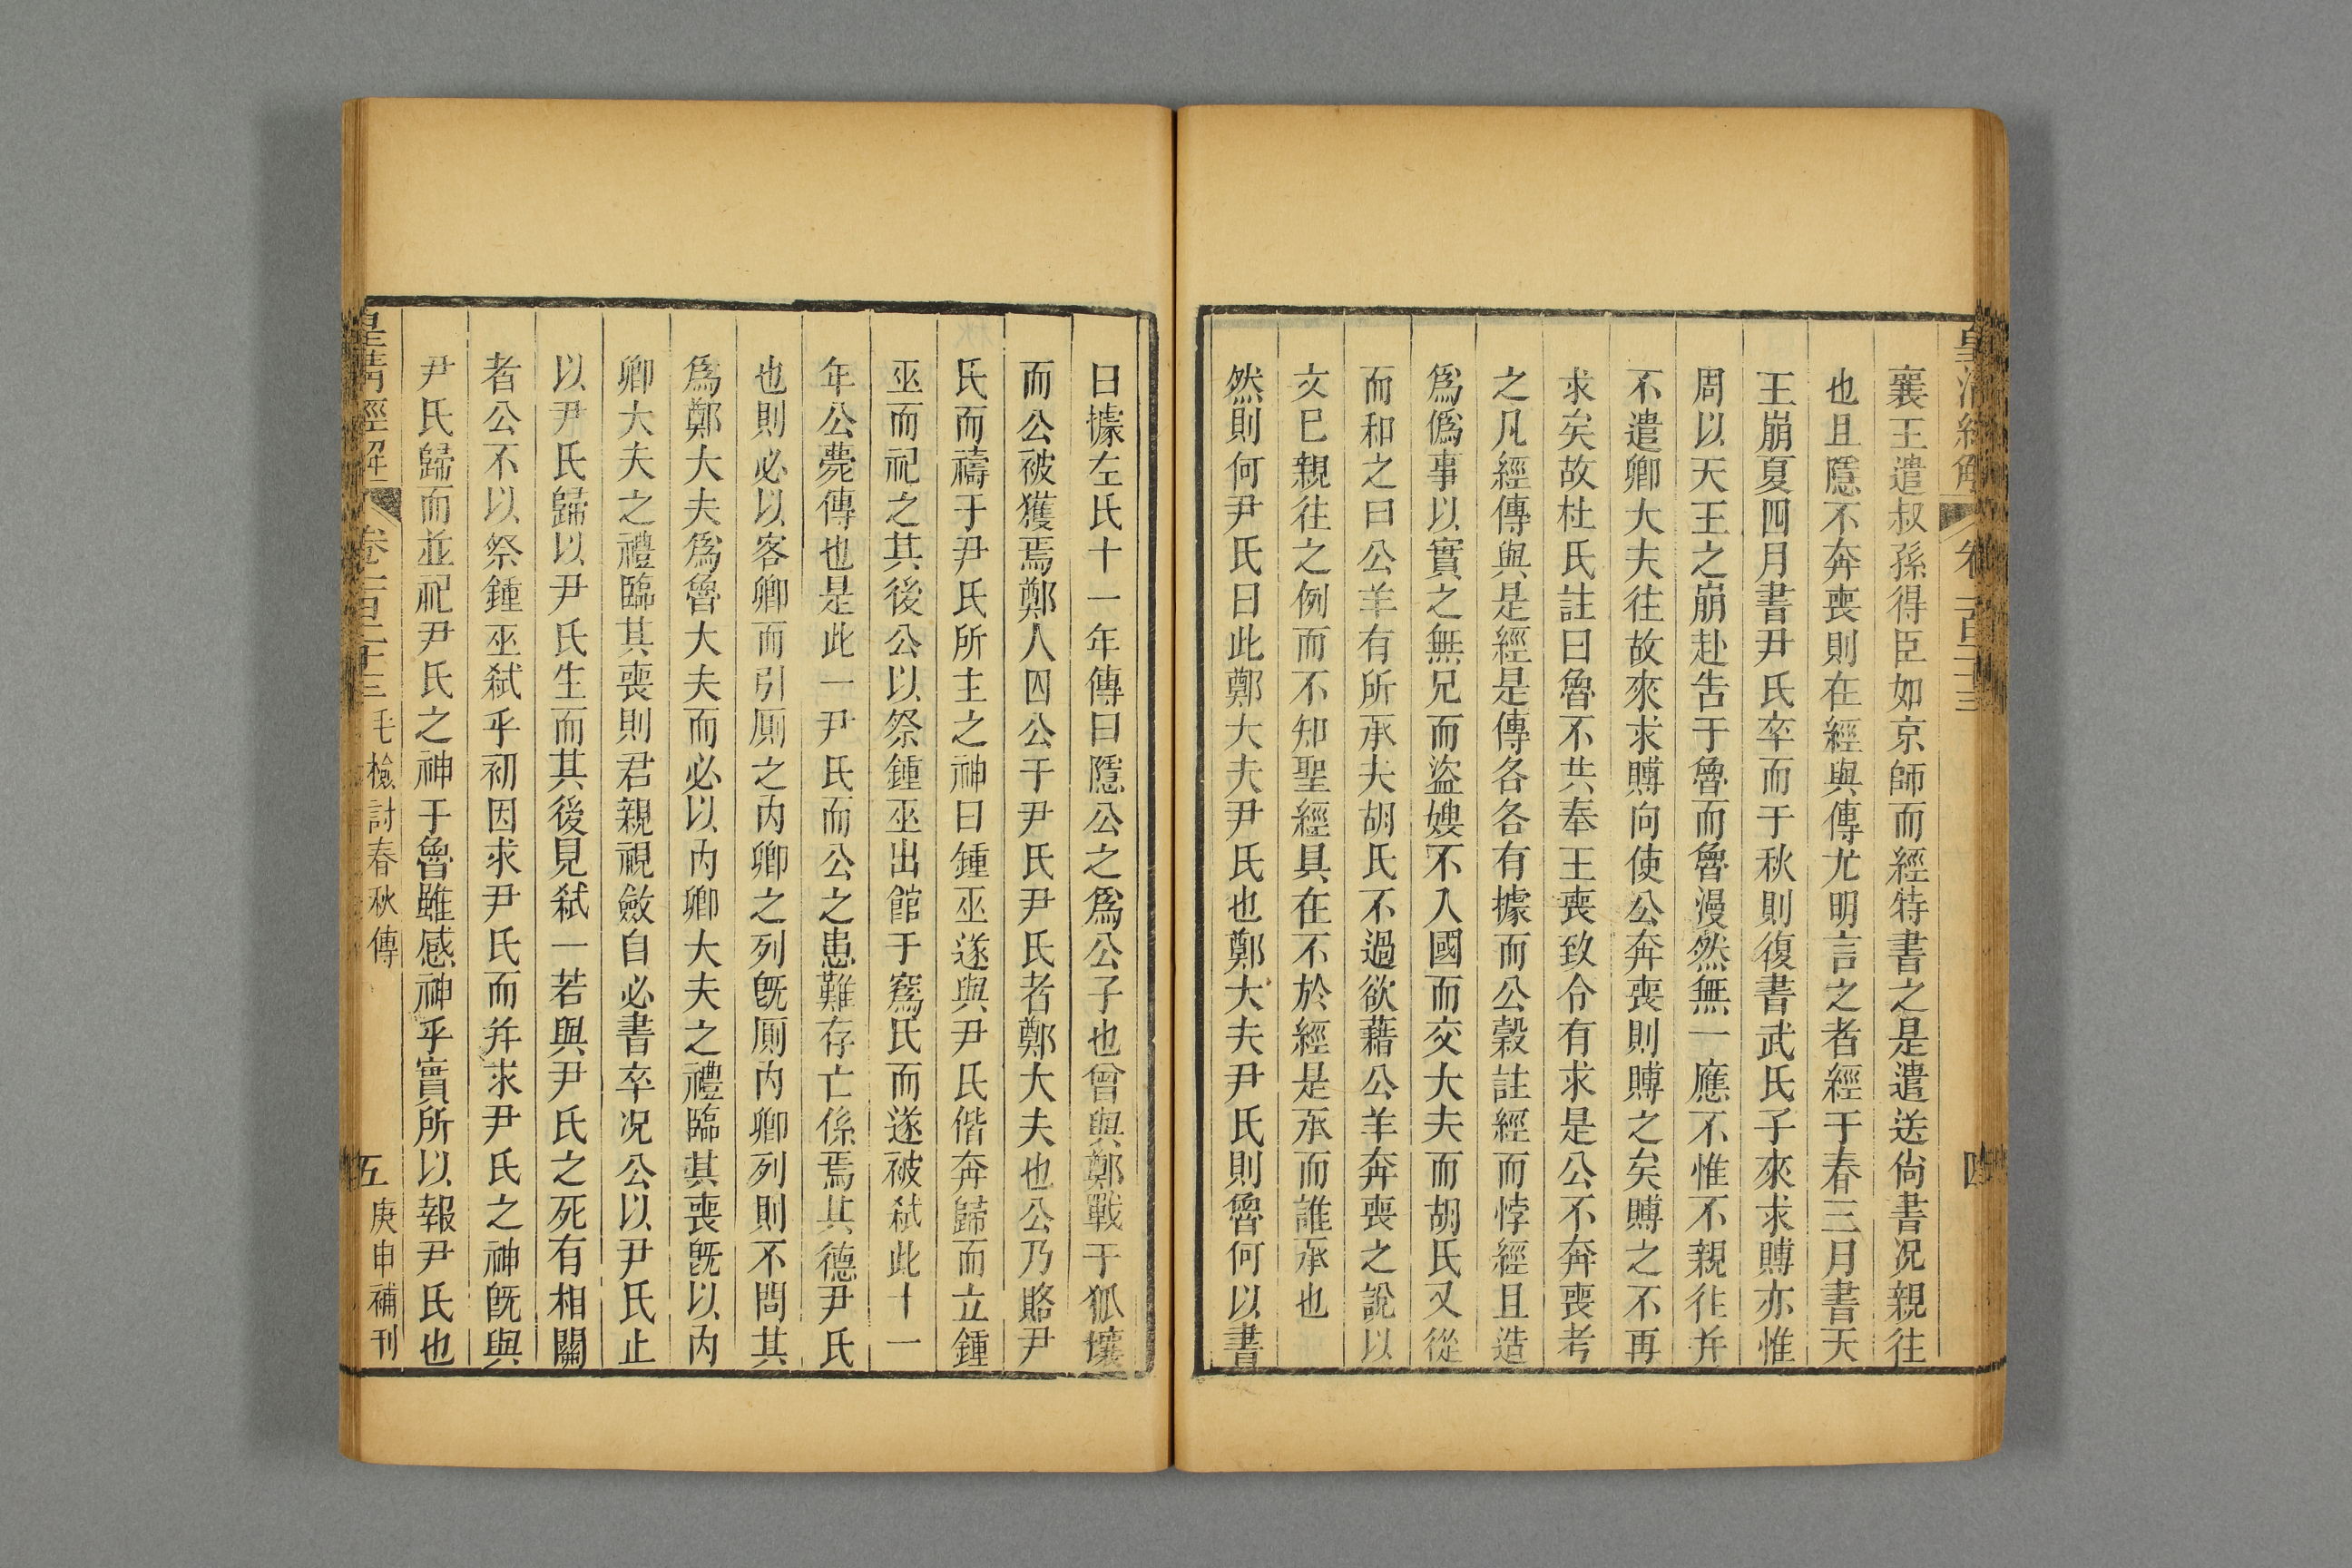 皇清經解 卷一百二十三 四
襄王遣叔孫得臣如京師而經特書之是遣送尙書况親往
也且隱不奔喪則在經與傳尤明言之者經于春三月書天
王崩夏四月書尹氏卒而于秋則復書武氏子來求賻亦惟
周以天王之崩赴告于魯而魯漫然無一應不惟不親往并
不遣卿大夫往故來求賻向使公奔喪則賻之矣賻之不再
求矣故杜氏註曰魯不共奉王喪致令有求是公不奔喪考
之凡經傳與是經是傳各各有據而公穀註經而悖經且造
爲僞事以實之無兄而盜嫂不入國而交大夫而胡氏又從
而和之曰公羊有所承夫胡氏不過欲藉公羊奔喪之說以
文巳親往之例而不知聖經具在不於經是承而誰承也
然則何尹氏曰此鄭大夫尹氏也鄭大夫尹氏則魯何以書
曰據左氏十一年傳曰隱公之爲公子也曾與鄭戰于狐壤
而公被獲焉鄭人囚公于尹氏尹氏者鄭大夫也公乃賂尹
氏而禱于尹氏所主之神曰鍾巫遂與尹氏偕奔歸而立鍾
巫而祀之其後公以祭鍾巫出館于寪氏而遂被弒此十一
年公薨傳也是此一尹氏而公之患難存亡係焉其德尹氏
也則必以客卿而引厠之內卿之列旣厠內卿列則不問其
爲鄭大夫爲魯大夫而必以內卿大夫之禮臨其喪旣以內
卿大夫之禮臨其喪則君親視斂自必書卒况公以尹氏止
以尹氏歸以尹氏生而其後見弒一若與尹氏之死有相關
者公不以祭鍾巫弒乎初因求尹氏而并求尹氏之神旣與
尹氏歸而並祀尹氏之神于魯雖感神乎實所以報尹氏也
皇清經解 卷一百二十三 毛檢討春秋傳 五 庚申補刊